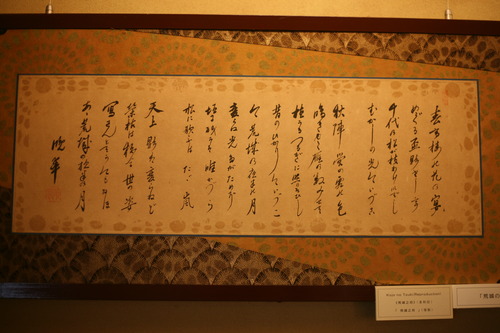 春高楼の花の宴
めぐる盃影さして
千代の松が枝わけいでし
むかしの光いまいづこ
秋陣営の霜の色
鳴き行く雁の数見せて
植うるつるぎに照りそひし
昔のひかりいまいづこ
今荒城の夜半の月
変らぬ光たがためぞ
垣に残るは唯かづら
松に歌ふはたゞ嵐
天上影は変らねど
栄枯は移る世の姿
写さんとてか今もなほ
あゝ荒城の夜半の月
晩翠